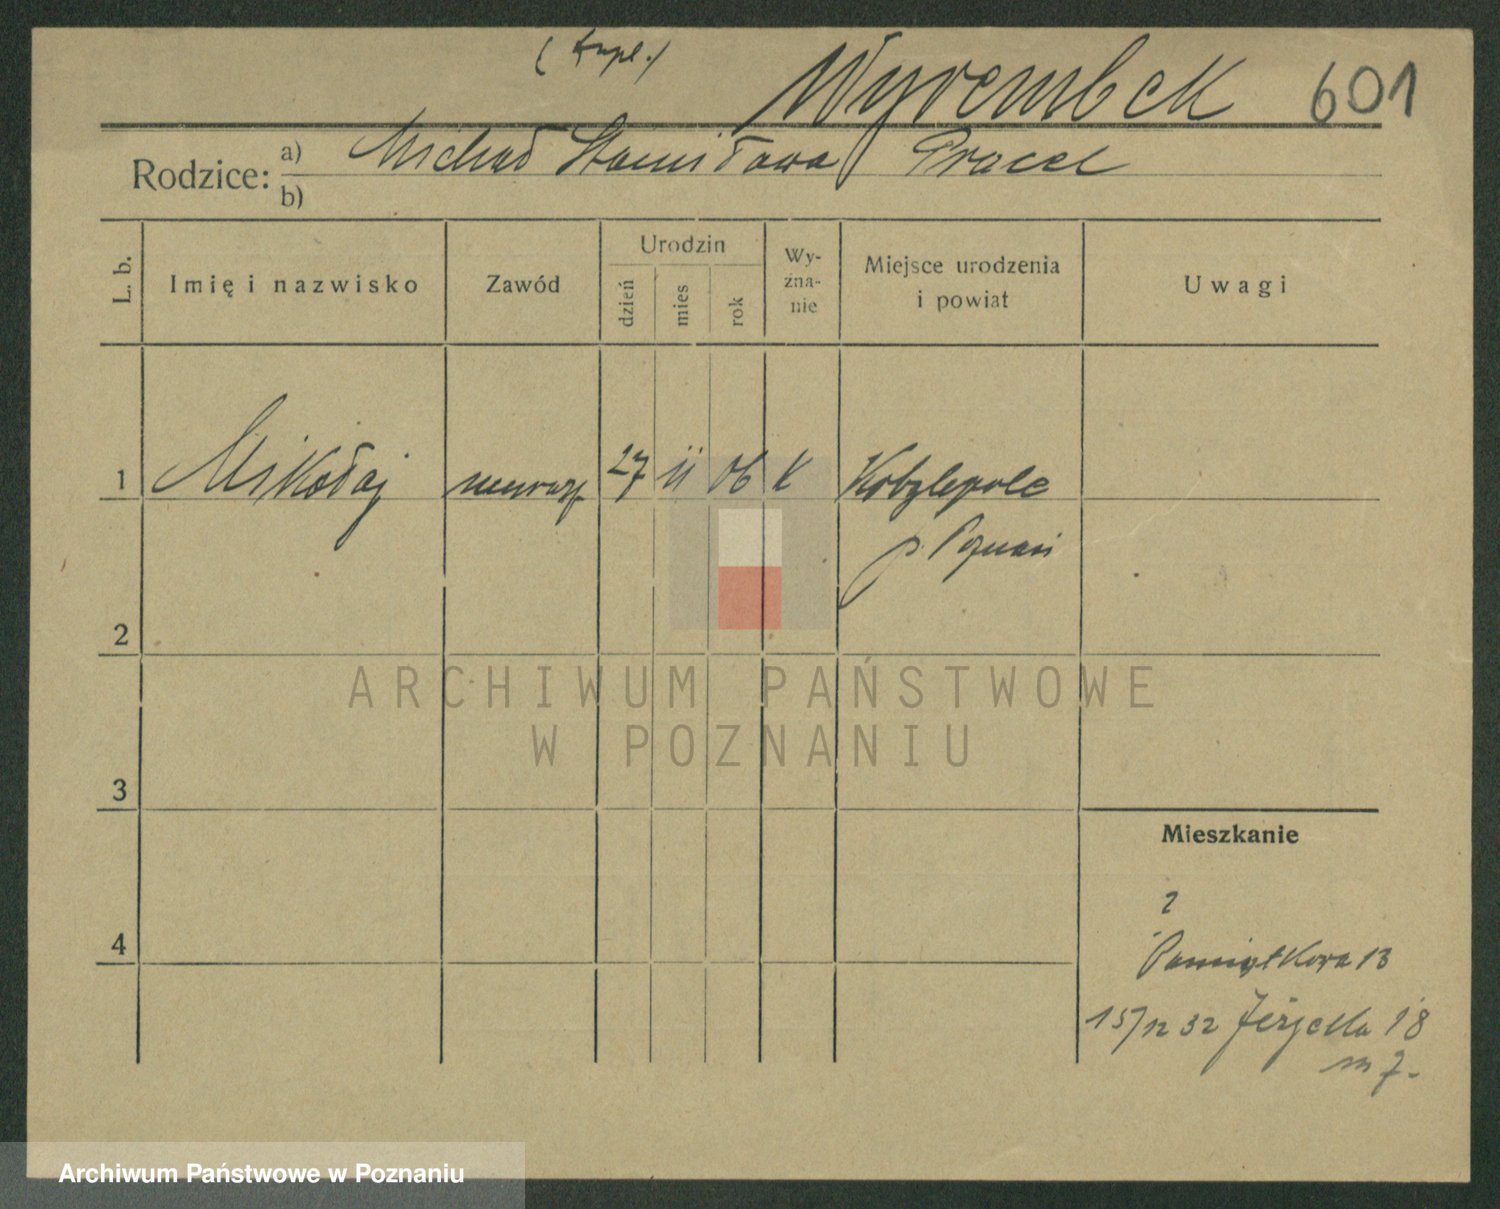 Wyrembek 601
Rodzice: a) Michał Stanisława Pracel
b)
L. b.
Imię i nazwisko
Zawód
Urodzin
dzień
mies
rok
Wy-
zna-
nie
Miejsce urodzenia
i powiat
Uwagi
1 Mikołaj 27 II 06 k Kobylepole
p. Poznań
2
3
4
Mieszkanie
2
Pamiątkowa 13
15/12 32 Jeżycka 18
m 7.
ARCHIWUM PAŃSTWOWE
W POZNANIU
Archiwum Państwowe w Poznaniu